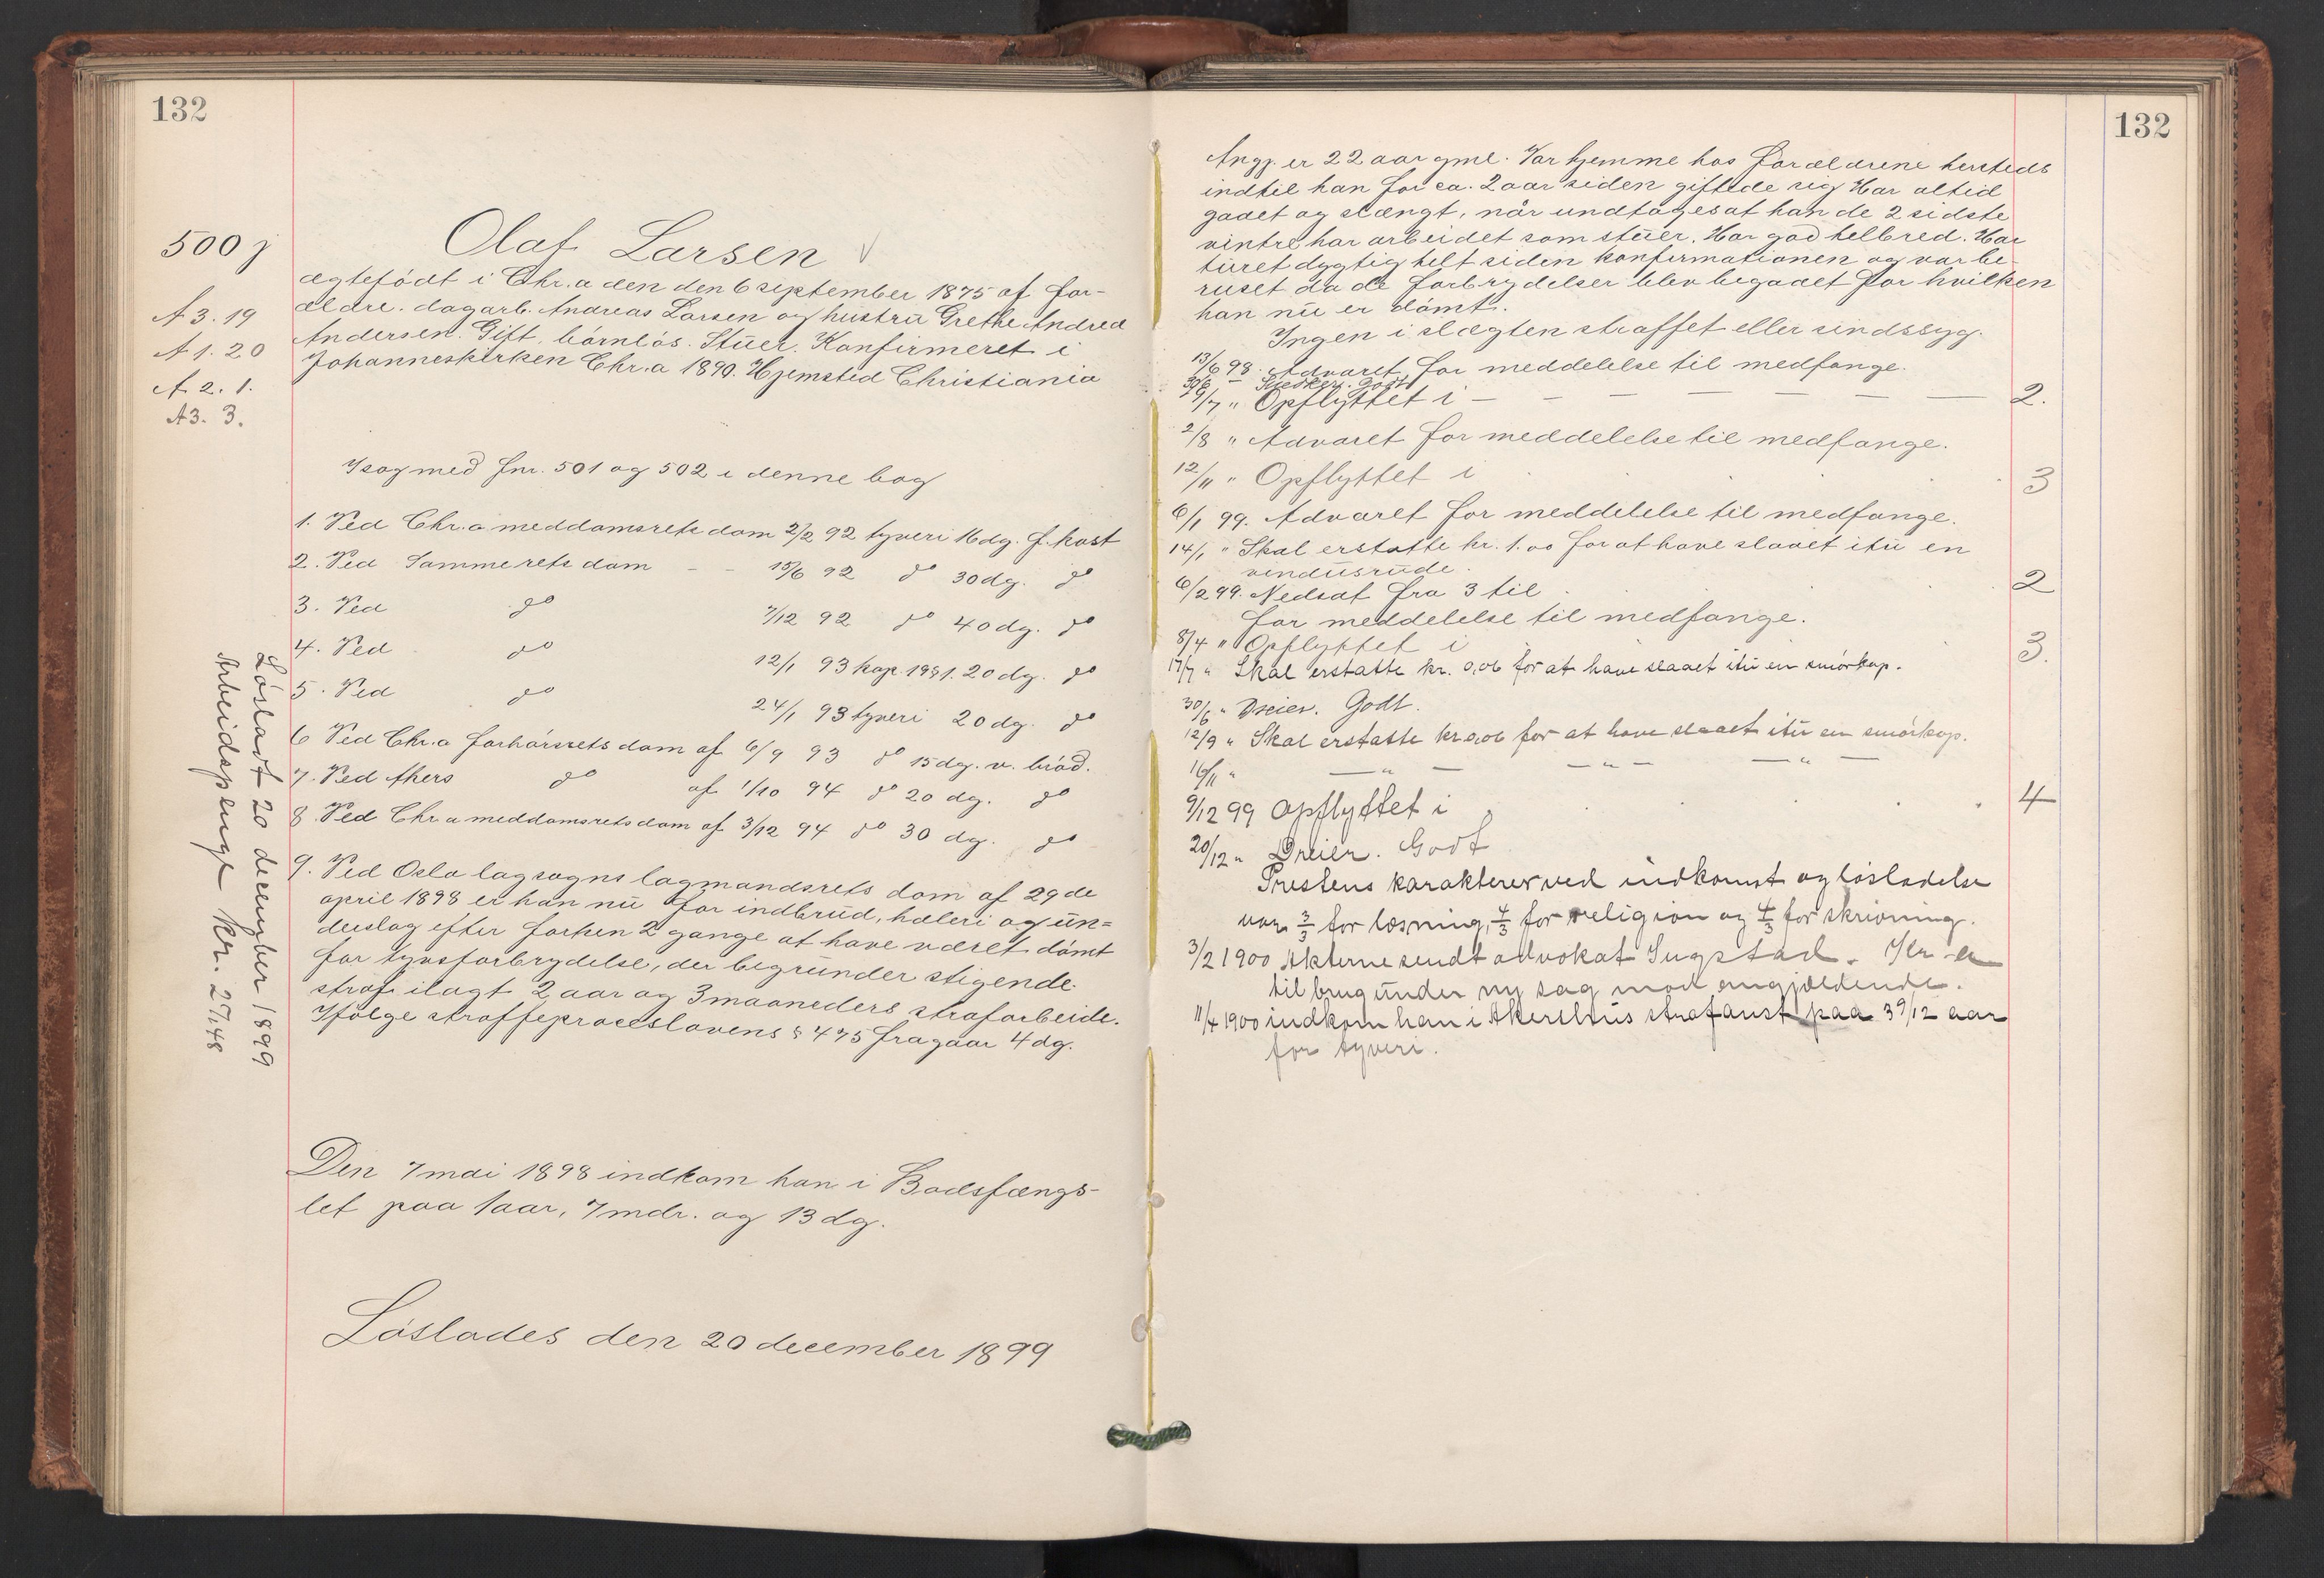 132
500 j
A 3. 19
A 1. 20
A 2. 1.
A 3. 3.
Olaf Larsen
ægtefödt i Chr.a den den 6 september 1875 af for-
ældre. dagarb. Andreas Larsen og hustru Grethe Andrea
Andersen. Gift, börnlös. Stüer. Konfirmeret i
Johanneskirken Chr.a 1890. Hjemsted Christiania
I sag med fnr. 501 og 502 i denne bog
1. Ved Chr.a meddomsrets dom 2/2 92 tyveri 16 dg. f. kost
2. Ved Samme rets dom - - 15/6 92 do 30 dg. do
3. Ved do 7/12 92 do 40 dg. do
4. Ved do 12/1 93 kap. 19 § 1. 20 dg. do
5. Ved do 24/1 93 tyveri 20 dg. do
6 Ved Chr.a forhörsrets dom af 6/9 93 do 15 dg. v. bröd.
7. Ved Akers do af 1/10 94 do 20 dg. do
8. Ved Chr a meddomsrets dom af 3/12 94 do 30 dg. do
9. Ved Oslo lagsogns lagmandsrets dom af 29de
april 1898 er han nü for indbrüd, hæleri og ün=
derslag efter forhen 2 gange at have været dömt
for tyvsforbrydelse, der begründer stigende
straf ilagt 2 aar og 3 maaneders strafarbeide.
Ifölge straffeproceslovens § 475 fragaar 4 dg.
Den 7 mai 1898 indkom han i Bodsfængs-
let paa 1 aar, 7 mdr. og 13 dg.
Löslades den 20 december 1899
Lösladt 20 december 1899
Arbeidspenge kr. 27,48
132
Angj. er 22 aar gml. Var hjemme hos forældrene hersteds
indtil han for ca. 2 aar siden giftede sig Har altid
gaaet og slængt, når undtages at han de 2 sidste
vintre har arbeidet som stüer. Har god helbred. Har
türet dygtig helt siden konfirmationen og var be-
ruset da de forbrydelser blev begaaet for hvilken
han nü er dömt.
Ingen i slægten straffet eller sindssyg.
13/6 98. Advaret for meddelelse til medfange.
30/6 - Snedker. Godt
29/7 " Opflyttet i - - - - - - - 2.
2/8 " Advaret for meddelelse til medfange.
12/11 " Opflyttet i 3
6/1 99. Advaret for meddelelse til medfange.
14/1 " Skal erstatte kr. 1.00 for at have slaaet itü en
vindüsrüde.
6/2 99. Nedsat fra 3 til 2
for meddelelse til medfange.
8/4 " Opflyttet i 3.
17/7 " Skal erstatte kr. 0,06 for at have slaaet itü en smörkop.
30/6 " Dreier. Godt.
12/9 " Skal erstatte kr 0,06 for at have slaaet itü en smörkop.
16/11 " — " — — " — — " —
9/12 99 Opflyttet i 4
20/12 " Dreier. Godt
Prestens karakterer ved indkomst og lösladelse
var 3/3 for læsning, 4/3 for religion og 4/3 for skrivning.
3/2 1900 Akterne sendt advokat Kr-a
til brug ünder ny sag mod angjældende.
11/4 1900 indkom han i Akershüs strafanst paa 3 9/12 aar
for tyveri.